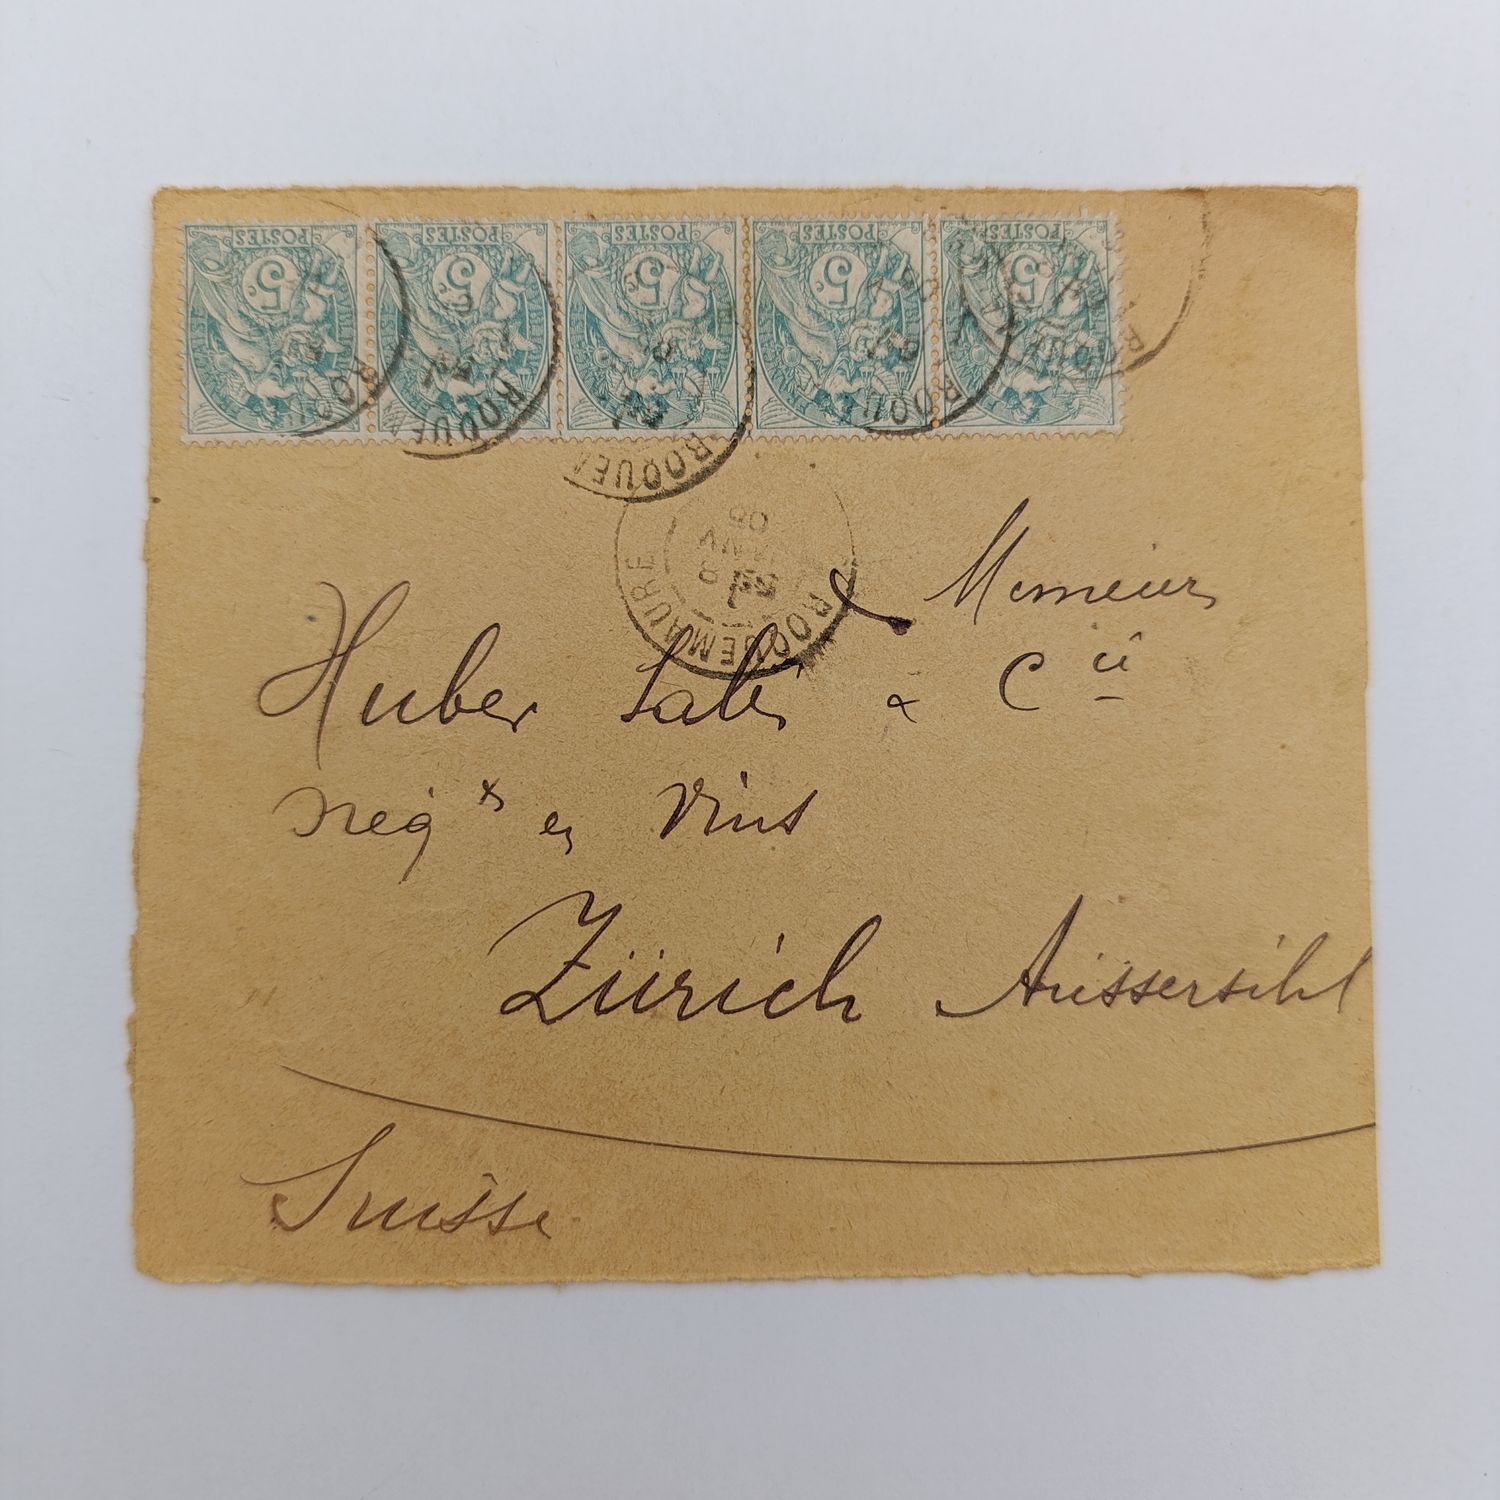 POSTES POSTES POSTES POSTES POSTES
5c. 5c. 5c. 5c. 5c.
ROQUEMAURE
Messieurs
Huber & Cie
Négts en Vins
Zürich Aussersihl
Suisse